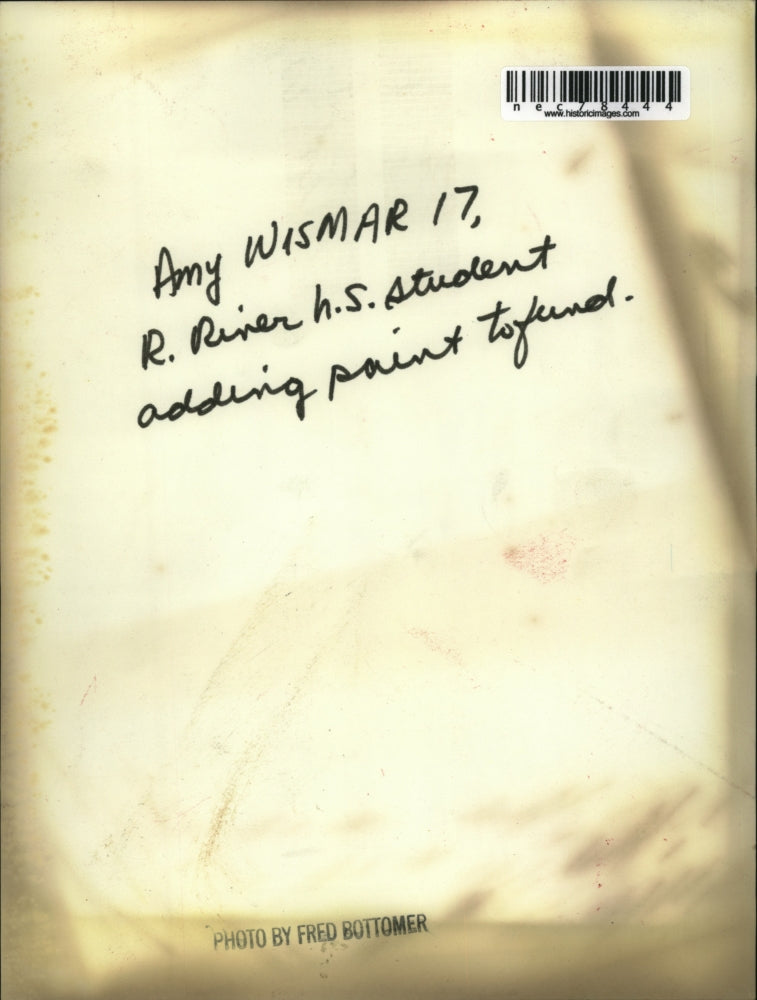 nec78444
www.historicimages.com
Amy WISMAR 17,
R. River h.s. student
adding paint to fund.
PHOTO BY FRED BOTTOMER